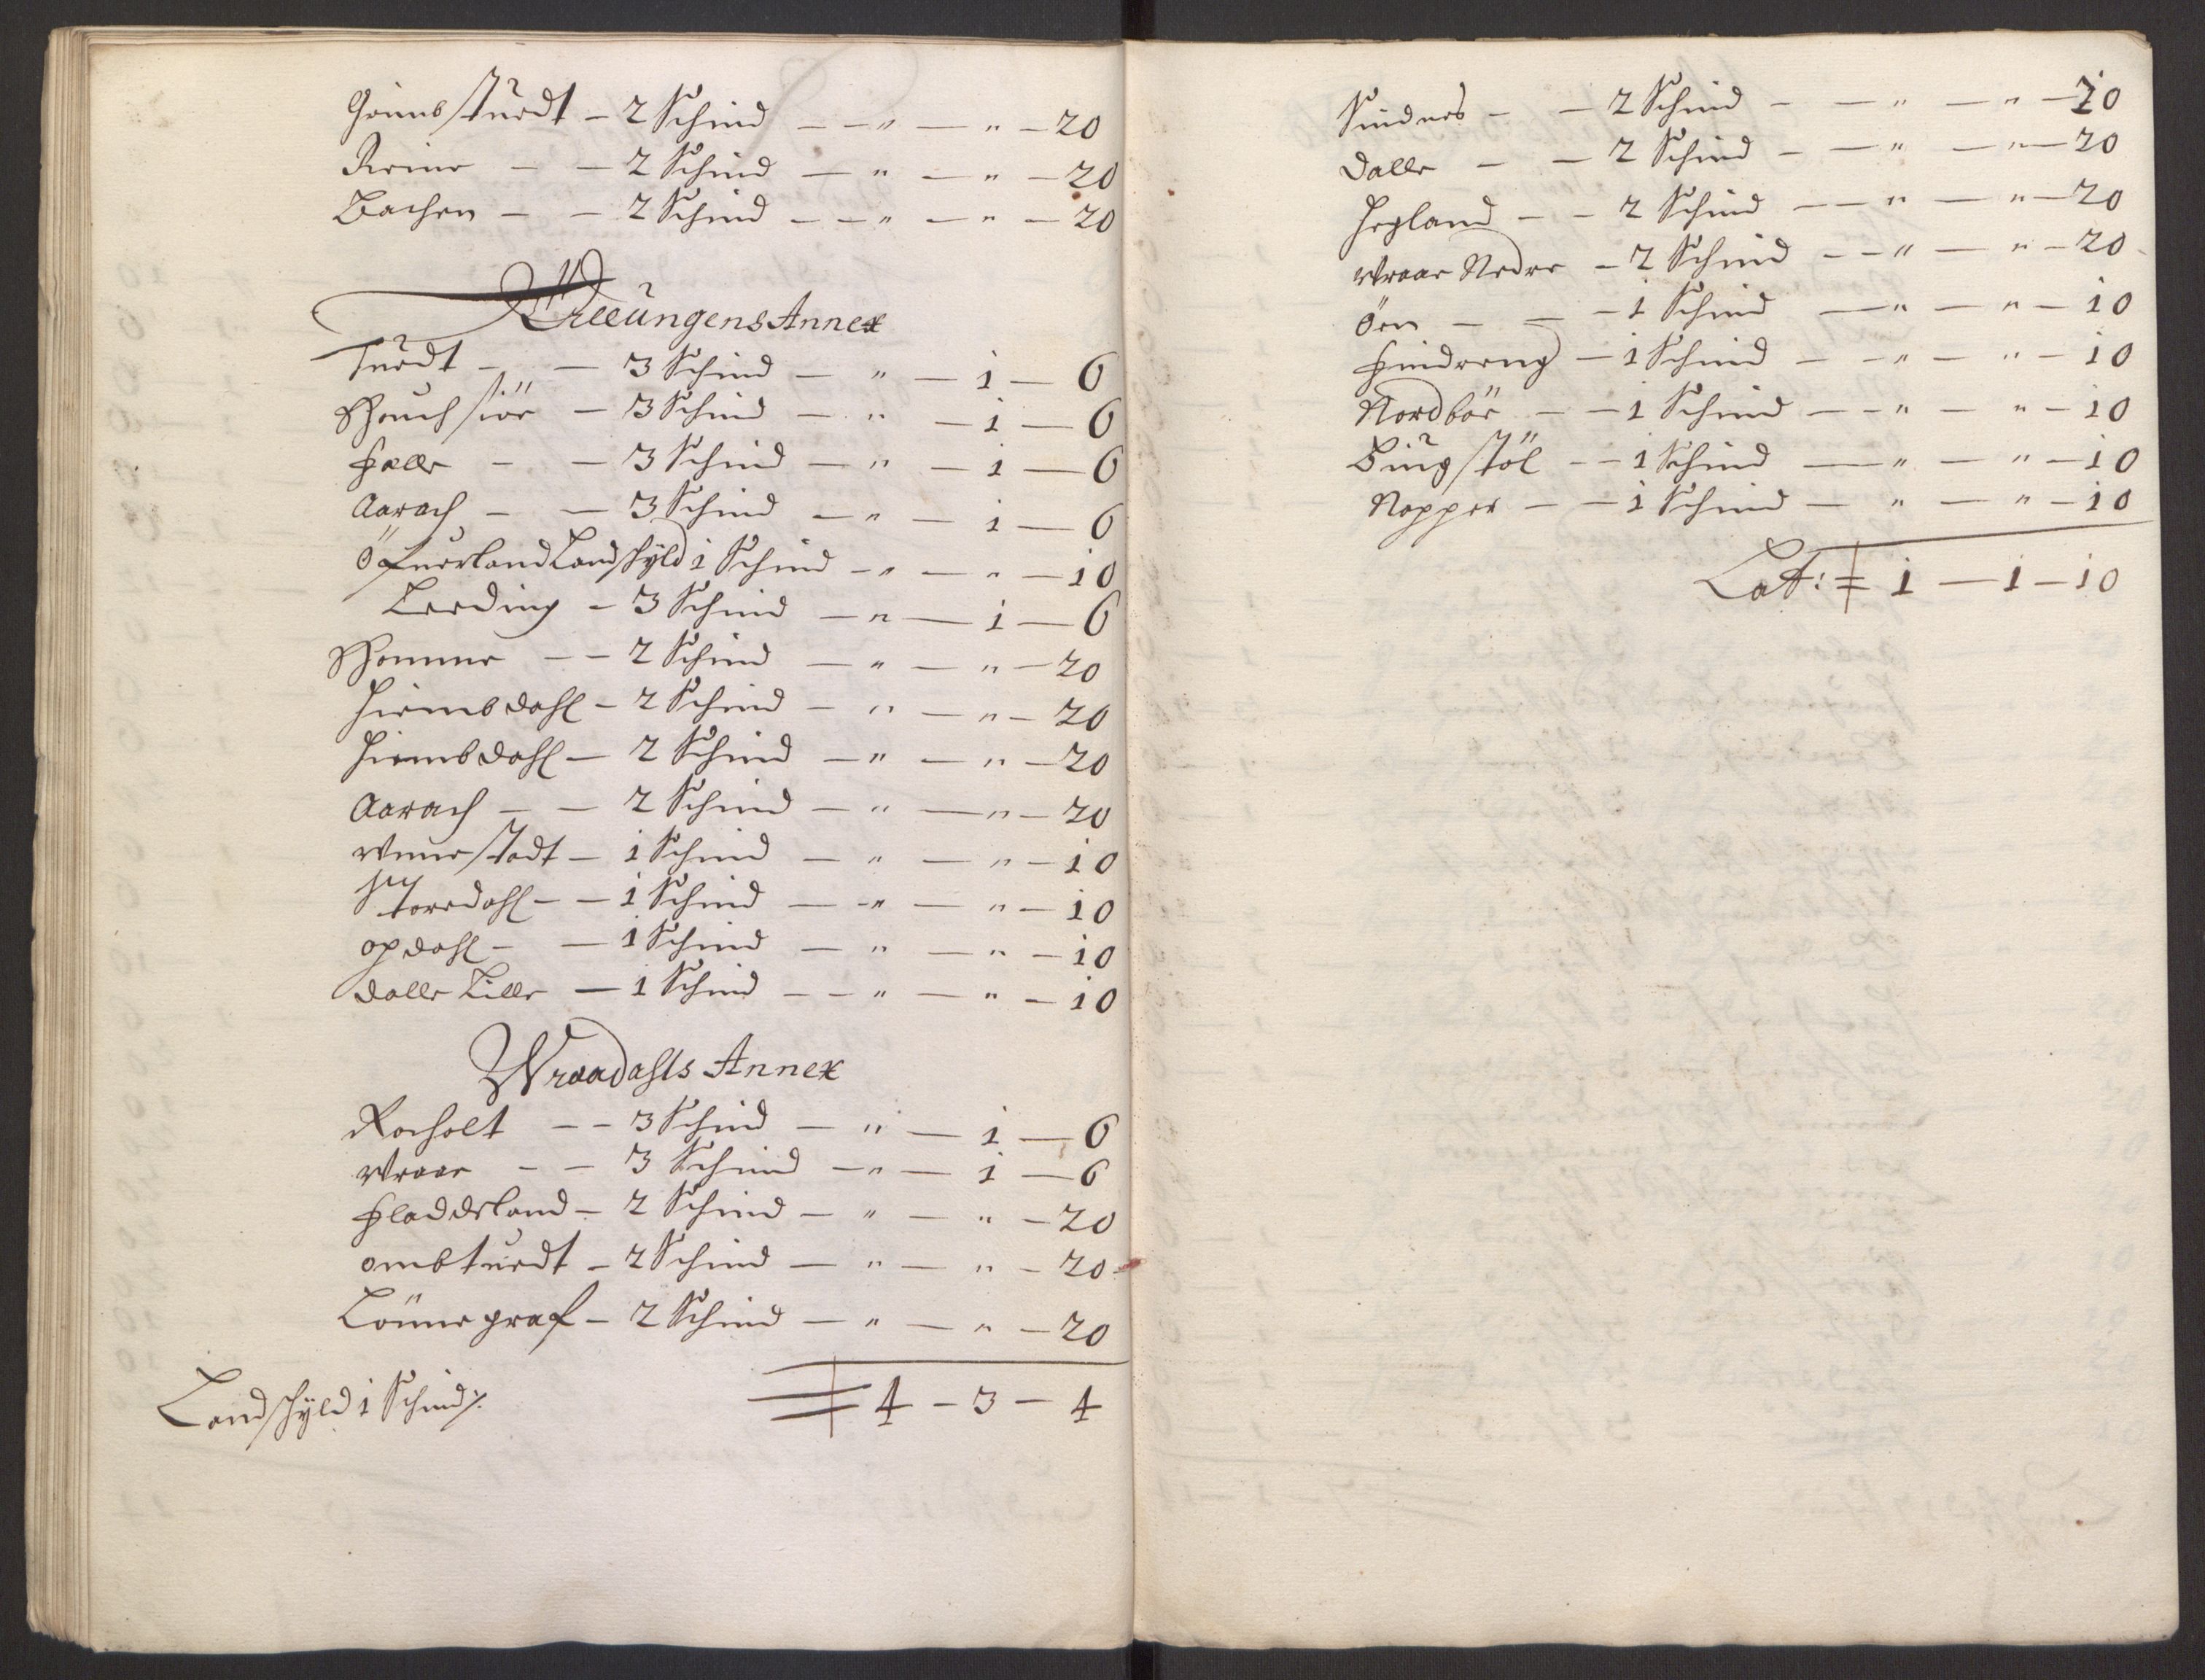 Göimbsturdt – 2 Schind – – " – " – 20
Reine – – 2 Schind – " – " – 20
Bachen – – 2 Schind – – " – " – 20
Treungens Annex
Turdt – – 3 Schind – " – 1 – 6
Houchsiör – 3 Schind – " – 1 – 6
Halle – – 3 Schind – " – 1 – 6
Aarach – – 3 Schind – " – 1 – 6
Öfuerland Landschÿld 1 Schind – " – " – 10
Leeding – 3 Schind – " – 1 – 6
Homme – – 2 Schind – " – " – 20
Heimbdahl – 2 Schind – " – " – 20
Heimbdahl – 2 Schind – " – " – 20
Aarach – – 2 Schind – " – " – 20
Wennestadt – 1 Schind – " – " – 10
Storedahl – – 1 Schind – " – " – 10
Opdahl – – 1 Schind – " – " – 10
Dalle Lille – 1 Schind – – " – " – 10
Wraadahls Annex
Roeholt – – 3 Schind – " – 1 – 6
Wraae – – 3 Schind – " – 1 – 6
Fladdeland – 2 Schind – " – " – 20
Ombturdt – 2 Schind – " – " – 20
Lönnegraf – 2 Schind – " – " – 20
Landschÿld 1 Schind ⁒ 4 – 3 – 4
Sindnes – – 2 Schind – – " – " – 20
Dalle – – 2 Schind – – " – " – 20
Hegland – – 2 Schind – – " – " – 20
Wraae Nedre – 2 Schind – – " – " – 20
Öen – – – 1 Schind – " – " – 10
Findreng – 1 Schind – – " – " – 10
Nordböe – – 1 Schind – – " – " – 10
Bingstöl – – 1 Schind – " – " – 10
Napper – – 1 Schind – " – " – 10
Lat: 1 – 1 – 10